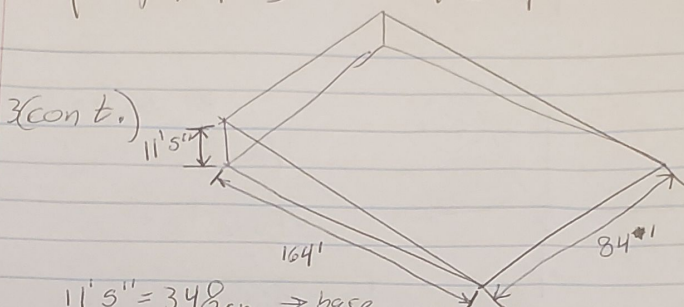 3(con t.)
11's"
164'
84'
11's" = 348cm → base